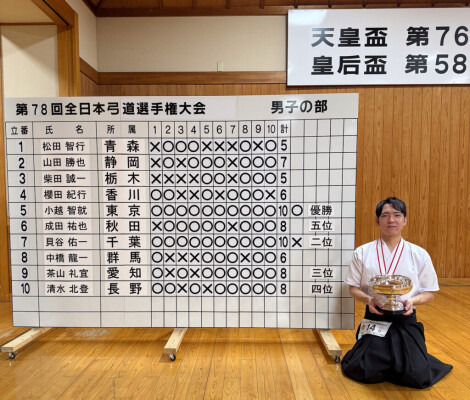 天皇盃 第76
皇后盃 第58
第78回全日本弓道選手権大会 男子の部
立番 氏名 所属 1 2 3 4 5 6 7 8 9 10 計
1 松田 智行 青森 5
2 山田 勝也 静岡 7
3 柴田 誠一 栃木 5
4 櫻田 紀行 香川 6
5 小越 智就 東京 10 ○ 優勝
6 成田 祐也 秋田 8 五位
7 貝谷 佑一 千葉 10 × 二位
8 中橋 龍一 群馬 6
9 茶山 礼宜 愛知 8 三位
10 清水 北登 長野 8 四位
14